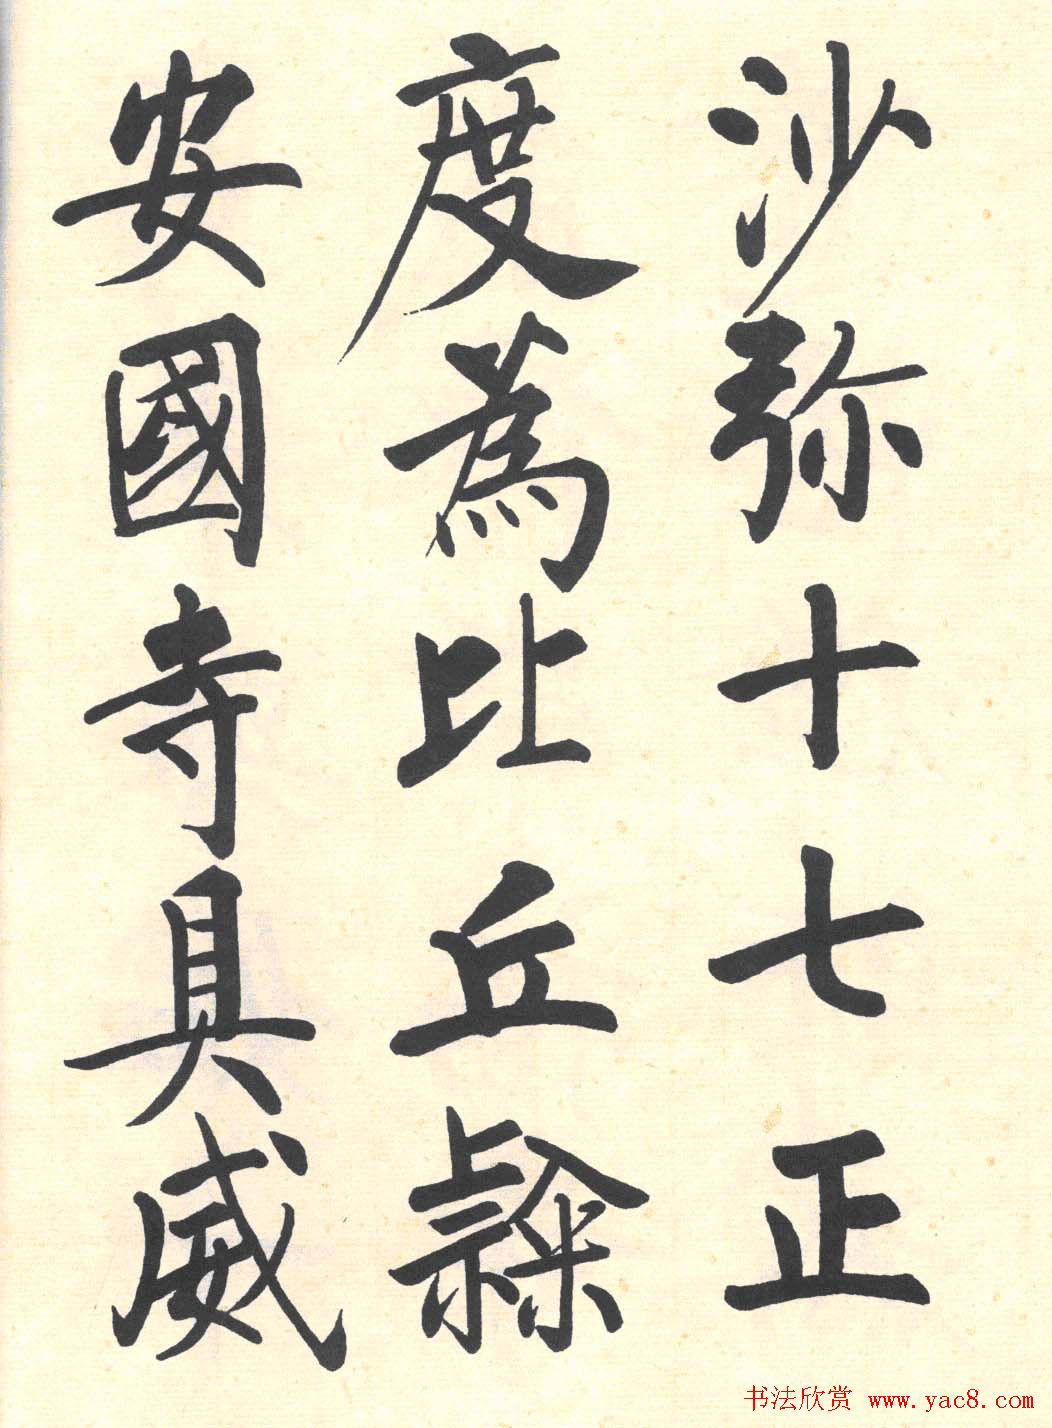 沙弥十七正
度為比丘隸
安國寺具威
书法欣赏 www.yac8.com